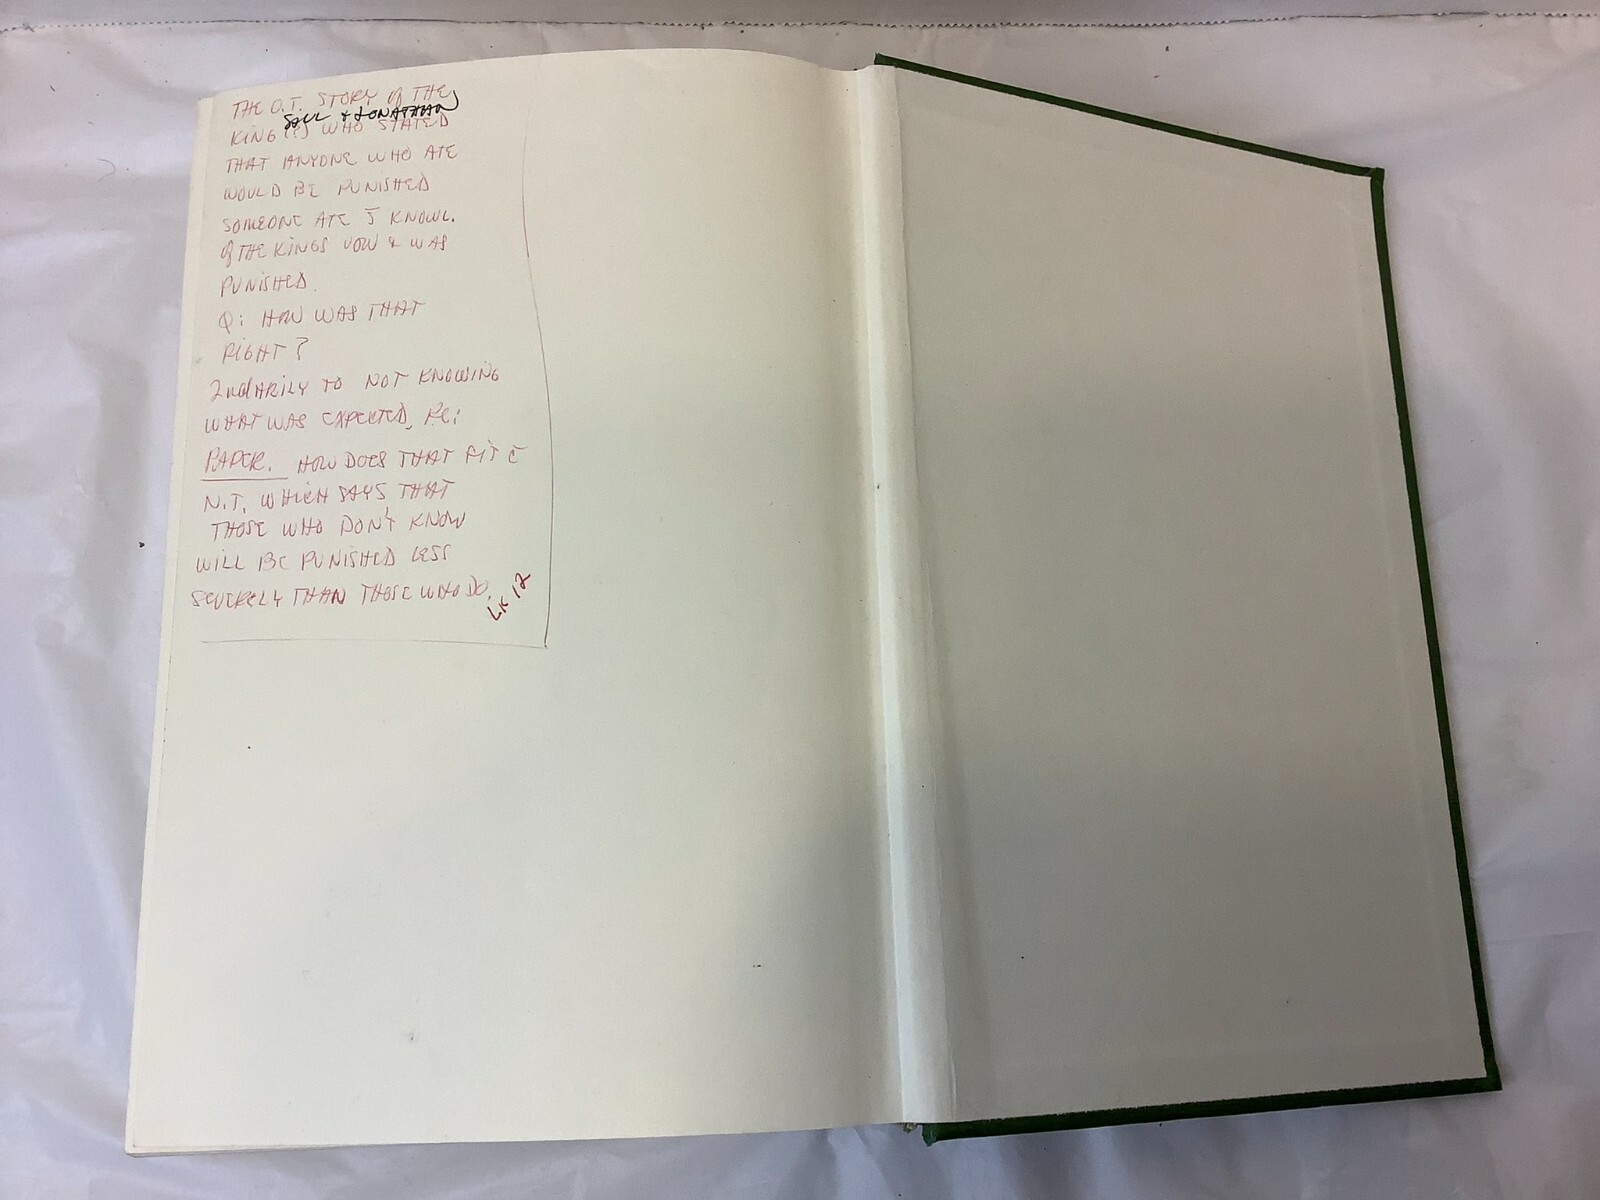 THE O.T. STORY of THE
SAUL & JONATHAN
KING (?) WHO STATED
THAT ANYONE WHO ATE
WOULD BE PUNISHED
SOMEONE ATE s̄ KNOWL.
of THE KINGS VOW & WAS
PUNISHED.
Q: HOW WAS THAT
RIGHT?
2ndARILY TO NOT KNOWING
WHAT WAS EXPECTED, RE:
PAPER. HOW DOES THAT FIT c̄
N.T. WHICH SAYS THAT
THOSE WHO DON'T KNOW
WILL BE PUNISHED LESS
SEVERELY THAN THOSE WHO DO.
LK 12